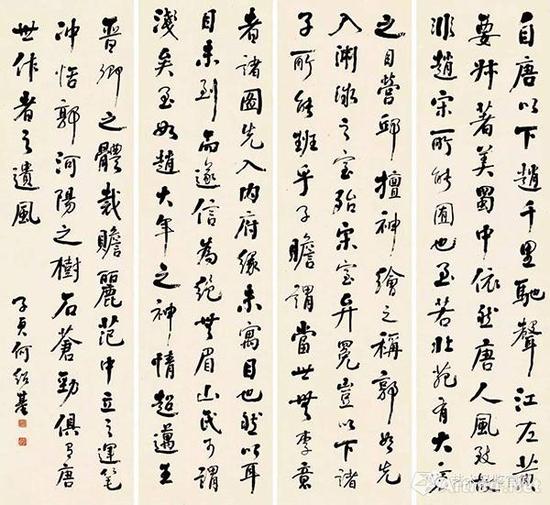 自唐以下趙千里馳聲江左黃
要叔著美蜀中依然唐人風致故
非趙宋所能囿也至若北苑有大家
之目營邱擅神繪之稱郭如先
入淵泳之室殆宋室弁冕豈以下諸
子所能班乎子瞻謂當世無李意
者諸圖先入內府緣未寓目也然以耳
目未到而遂信為絕無眉山氏可謂
淺矣至如趙大年之神情超邁王
晉卿之體裁贍麗范中立之運筆
沖恬郭河陽之樹石蒼勁俱有唐
世作者之遺風
子貞何紹基